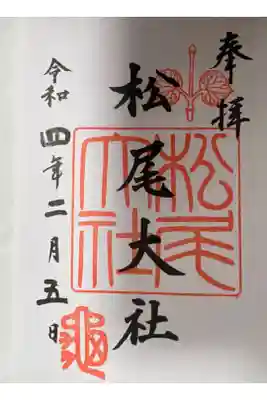 奉拝
松尾大社
令和四年二月五日
松尾大社
龜